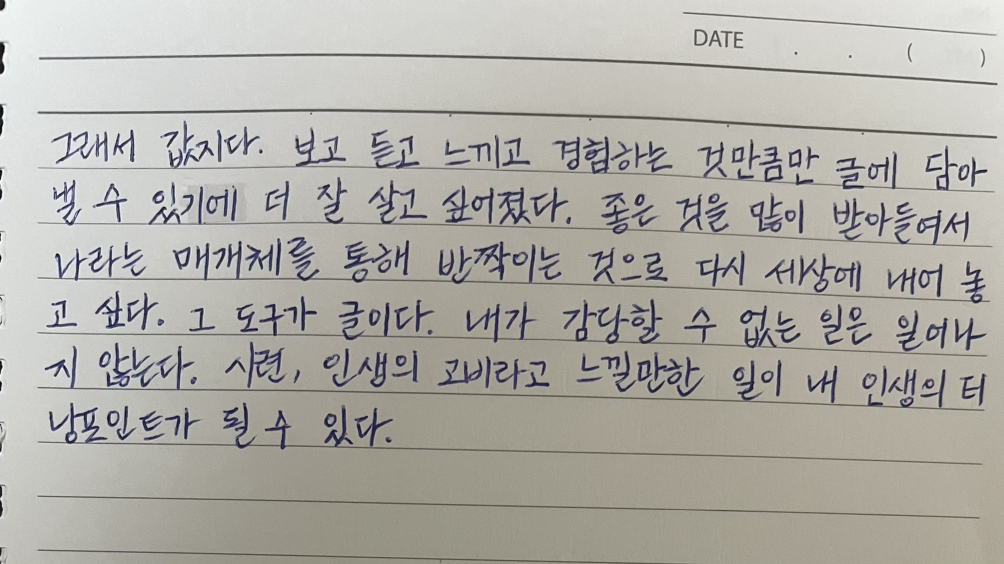 DATE . . ( )
그래서 값지다. 보고 듣고 느끼고 경험하는 것만큼만 글에 담아
낼 수 있기에 더 잘 살고 싶어졌다. 좋은 것을 많이 받아들여서
나라는 매개체를 통해 반짝이는 것으로 다시 세상에 내어 놓
고 싶다. 그 도구가 글이다. 내가 감당할 수 없는 일은 일어나
지 않는다. 시련, 인생의 고비라고 느낄만한 일이 내 인생의 터
닝포인트가 될 수 있다.